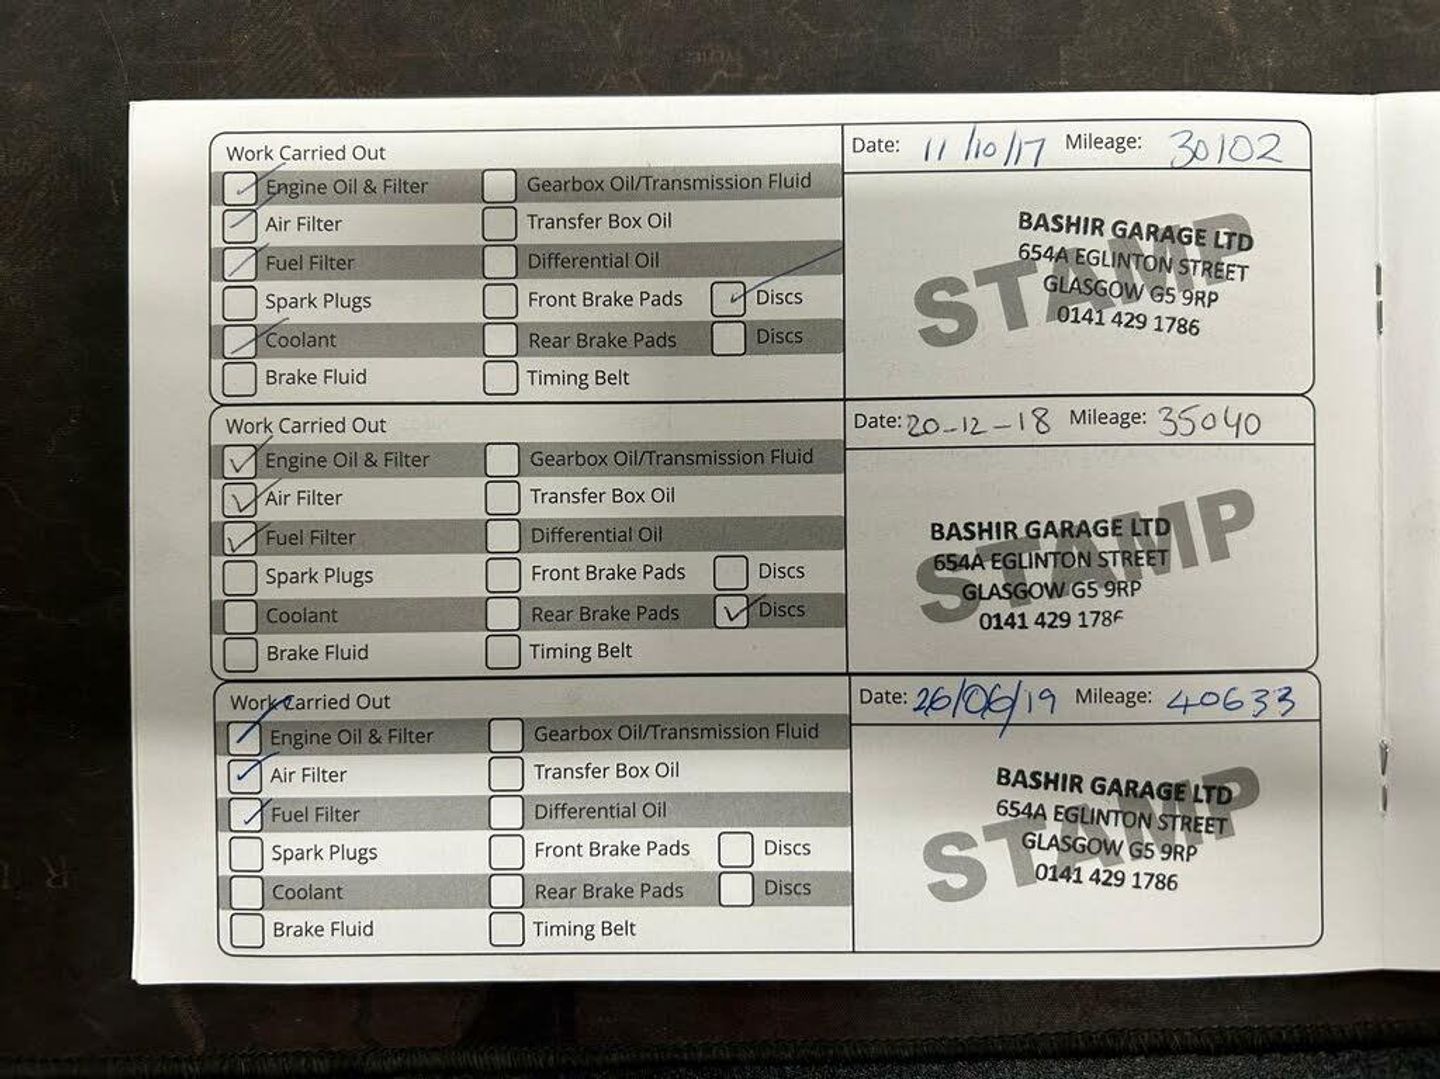 Work Carried Out
Engine Oil & Filter Gearbox Oil/Transmission Fluid
Air Filter Transfer Box Oil
Fuel Filter Differential Oil
Spark Plugs Front Brake Pads Discs
Coolant Rear Brake Pads Discs
Brake Fluid Timing Belt
Date: 11/10/17 Mileage: 30102
STAMP
BASHIR GARAGE LTD
654A EGLINTON STREET
GLASGOW G5 9RP
0141 429 1786
Work Carried Out
Engine Oil & Filter Gearbox Oil/Transmission Fluid
Air Filter Transfer Box Oil
Fuel Filter Differential Oil
Spark Plugs Front Brake Pads Discs
Coolant Rear Brake Pads Discs
Brake Fluid Timing Belt
Date: 20-12-18 Mileage: 35040
STAMP
BASHIR GARAGE LTD
654A EGLINTON STREET
GLASGOW G5 9RP
0141 429 1786
Work Carried Out
Engine Oil & Filter Gearbox Oil/Transmission Fluid
Air Filter Transfer Box Oil
Fuel Filter Differential Oil
Spark Plugs Front Brake Pads Discs
Coolant Rear Brake Pads Discs
Brake Fluid Timing Belt
Date: 26/06/19 Mileage: 40633
STAMP
BASHIR GARAGE LTD
654A EGLINTON STREET
GLASGOW G5 9RP
0141 429 1786